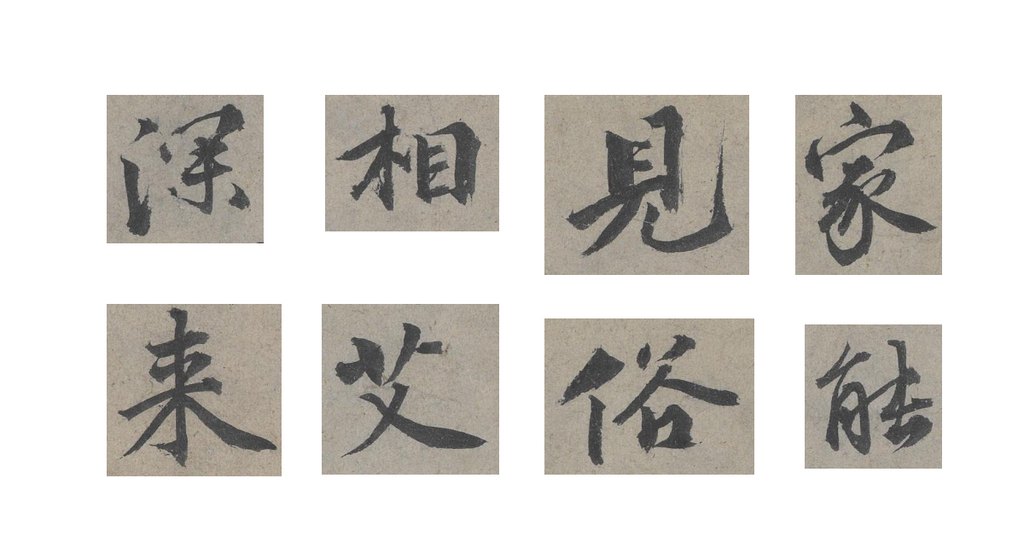 深相見家
来艾俗能